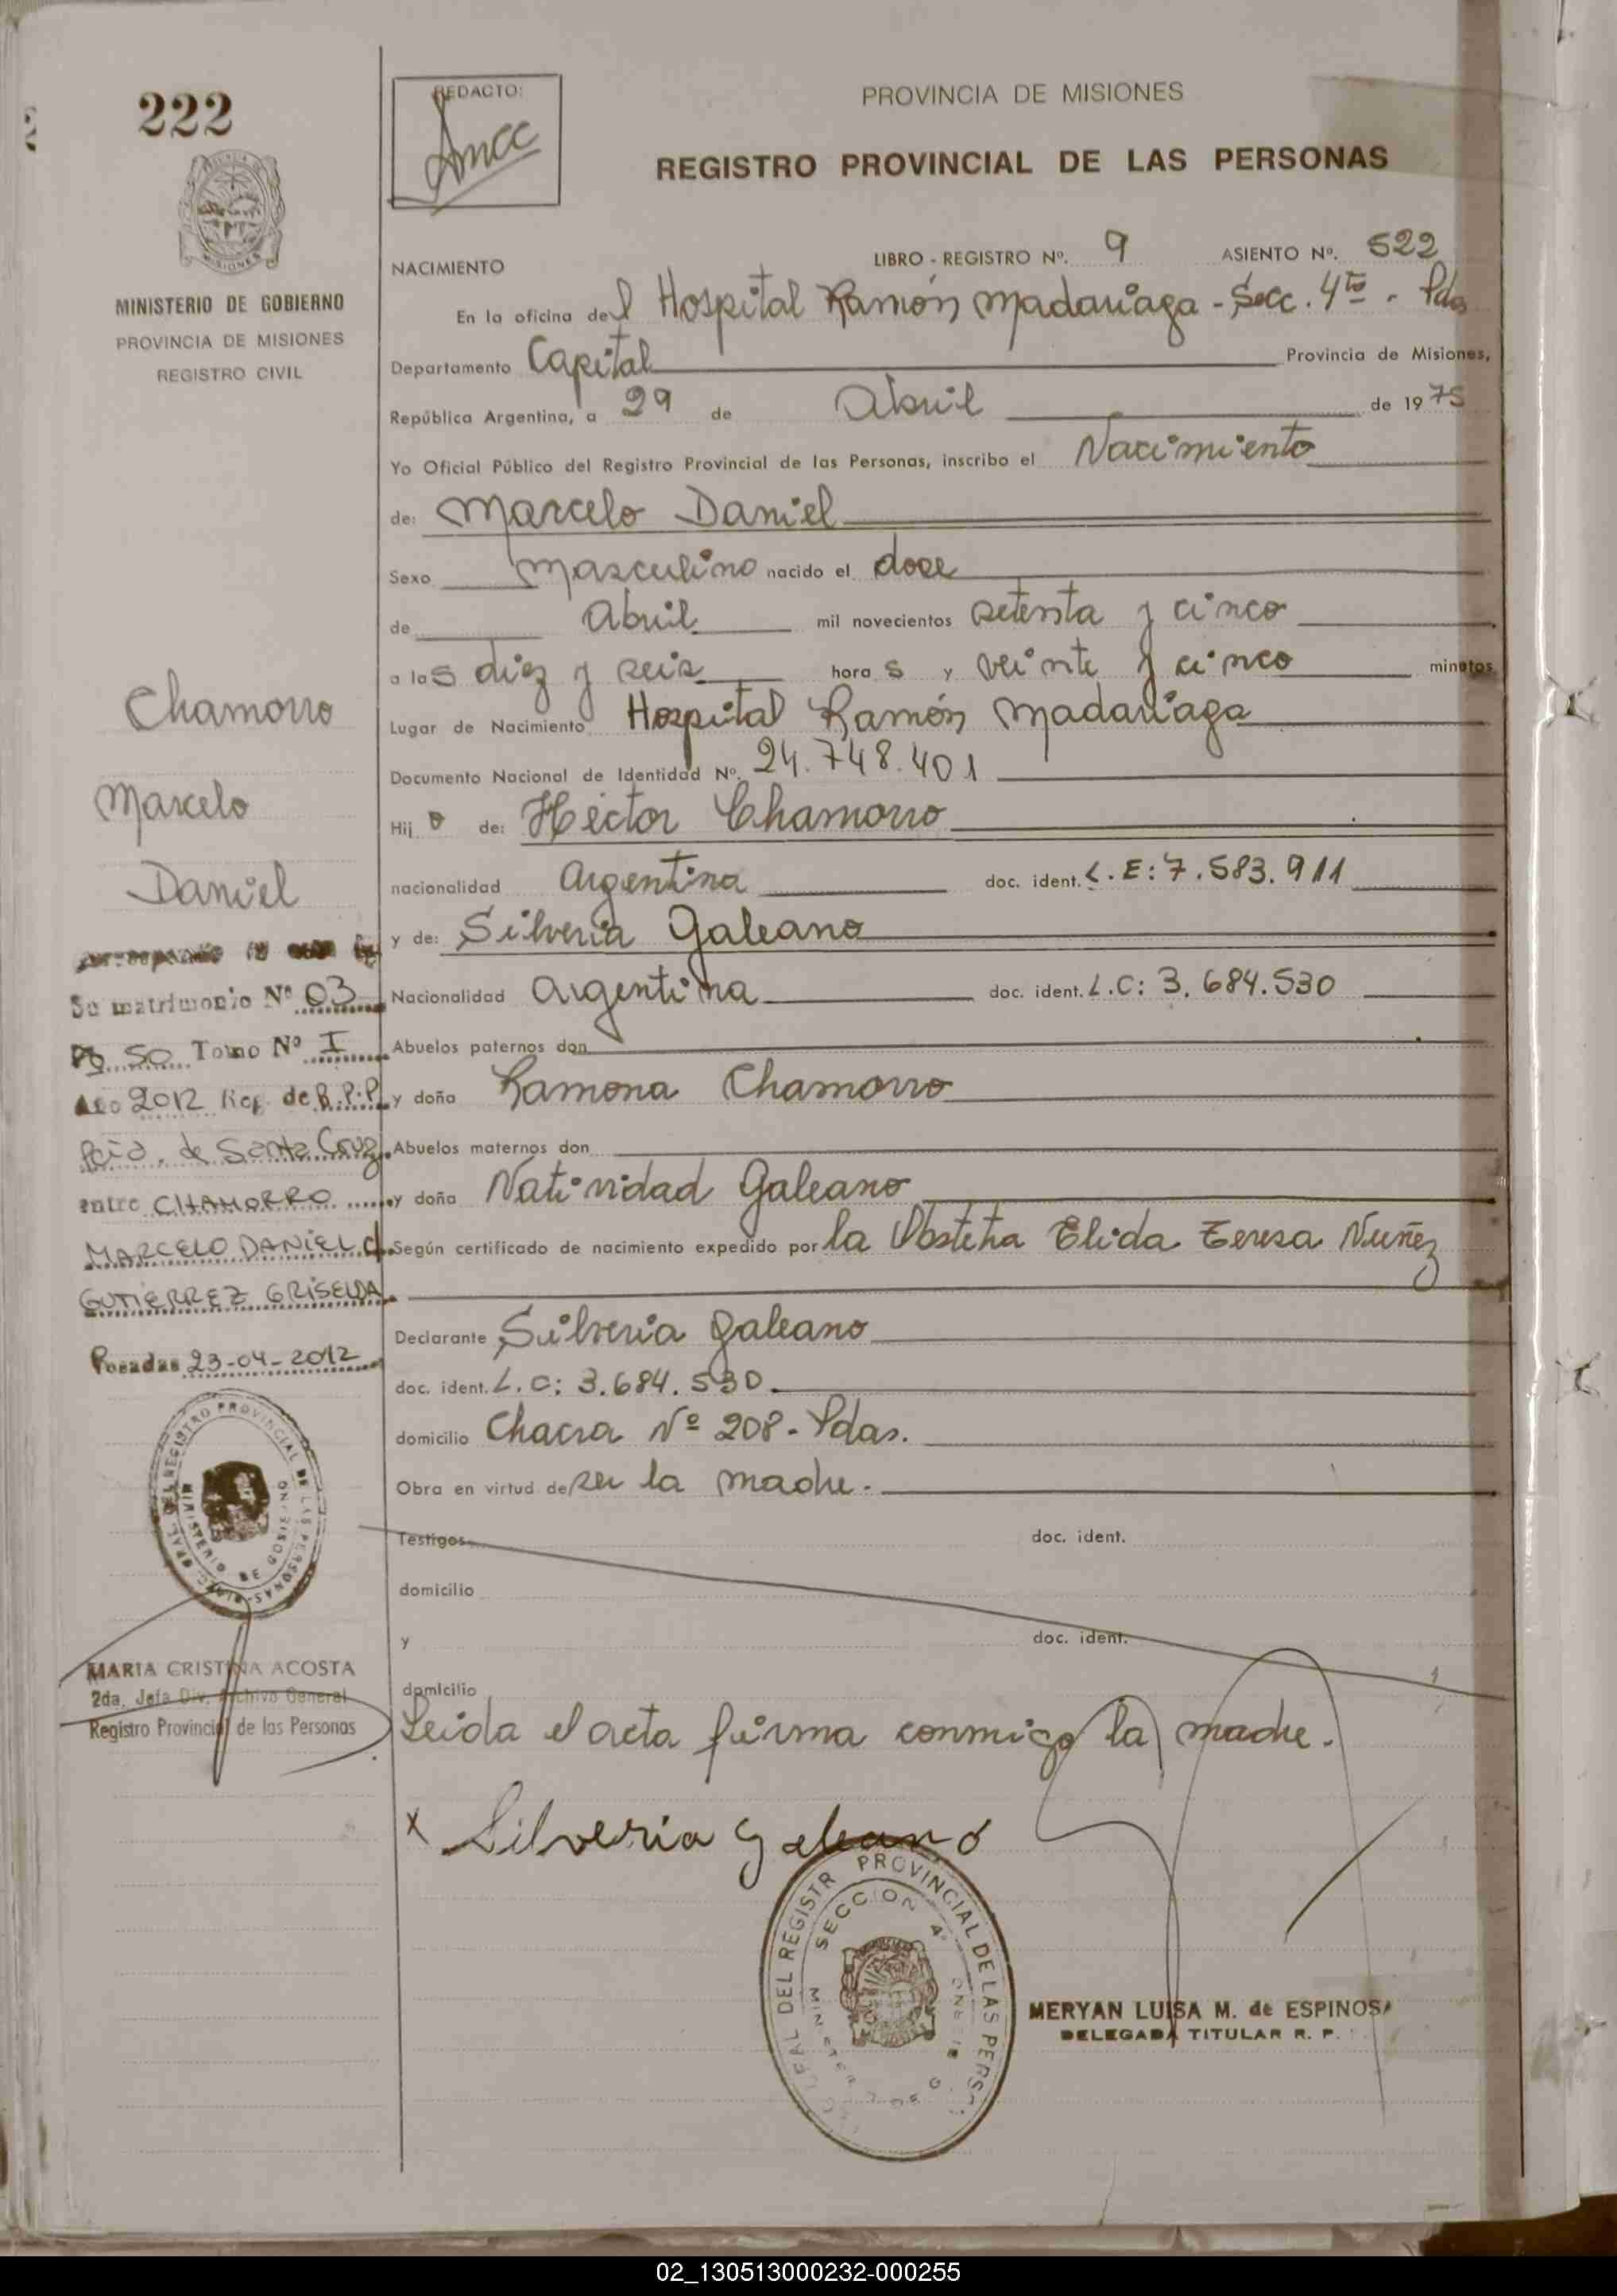 222
REDACTO:
PROVINCIA DE MISIONES
REGISTRO PROVINCIAL DE LAS PERSONAS
MINISTERIO DE GOBIERNO
PROVINCIA DE MISIONES
REGISTRO CIVIL
NACIMIENTO
LIBRO - REGISTRO Nº. 9 ASIENTO Nº. 522
En la oficina del Hospital Ramón Madariaga - Secc. 4ta - Pdas
Departamento Capital Provincia de Misiones,
República Argentina, a 29 de Abril de 1975
Yo Oficial Público del Registro Provincial de las Personas, inscribo el Nacimiento
de: Marcelo Daniel
Sexo masculino nacido el doce
de Abril mil novecientos setenta y cinco
a las diez y seis horas y veinte y cinco minutos
Lugar de Nacimiento Hospital Ramón Madariaga
Documento Nacional de Identidad Nº. 24.748.401
Hijo de: Héctor Chamorro
nacionalidad Argentina doc. ident. L.E: 7.583.911
y de: Silveria Galeano
Nacionalidad Argentina doc. ident. L.C: 3.684.530
Abuelos paternos don
y doña Ramona Chamorro
Abuelos maternos don
y doña Natividad Galeano
Según certificado de nacimiento expedido por la Obstetra Elida Teresa Nuñez
Declarante Silveria Galeano
doc. ident. L.C: 3.684.530
domicilio Chacra Nº 208 - Pdas.
Obra en virtud de ser la madre.
Testigos doc. ident.
domicilio
y doc. ident.
domicilio
Leida el acta firma conmigo la madre.
x Silveria Galeano
PROVINCIAL DE LAS PERS
DEL REGISTR
SECCION 4ª
MERYAN LUISA M. de ESPINOSA
DELEGADA TITULAR R. P.
Chamorro
Marcelo
Daniel
Su matrimonio Nº 03
Fº 50 Tomo Nº I
Año 2012 Reg. de R.P.P
Pcia. de Santa Cruz
entre CHAMORRO
MARCELO DANIEL c/
GUTIERREZ GRISELDA
Posadas 23-04-2012
GRAL. DEL REGISTRO PROVINCIAL DE LAS PERSONAS
MINISTERIO DE GOBIERNO
MARIA CRISTINA ACOSTA
2da. Jefa Div. Archivo General
Registro Provincial de las Personas
02_130513000232-000255